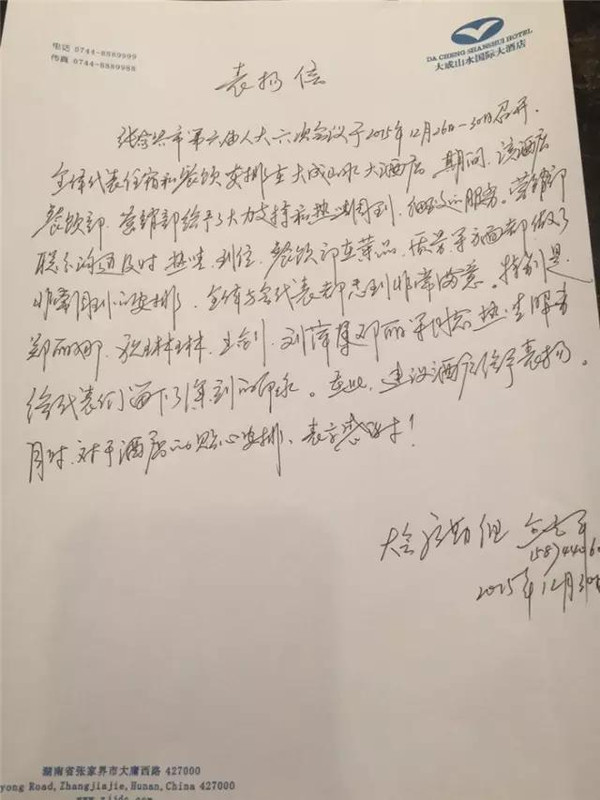 电话 0744-8889999
传真 0744-8889988
DA CHENG SHANSHUI HOTEL
大成山水国际大酒店
表扬信
张家界市第六届人大六次会议于2015年12月26日—30日召开。
全体代表住宿和餐饮安排在大成山水大酒店。期间，该酒店
餐饮部、营销部给予了大力支持和热情周到、细致的服务。营销部
联系沟通及时、热情、到位，餐饮部在菜品、质量等方面都做了
非常周到的安排，全体与会代表都感到非常满意。特别是
郑丽娜、张琳琳、王剑、刘萍及邓丽等同志热情服务
给代表们留下了深刻的印象。在此，建议酒店给予表扬。
同时，对于酒店的贴心安排，表示感谢！
大会后勤组
2015年12月30日
湖南省张家界市大庸西路 427000
yong Road, Zhangjiajie, Hunan, China 427000